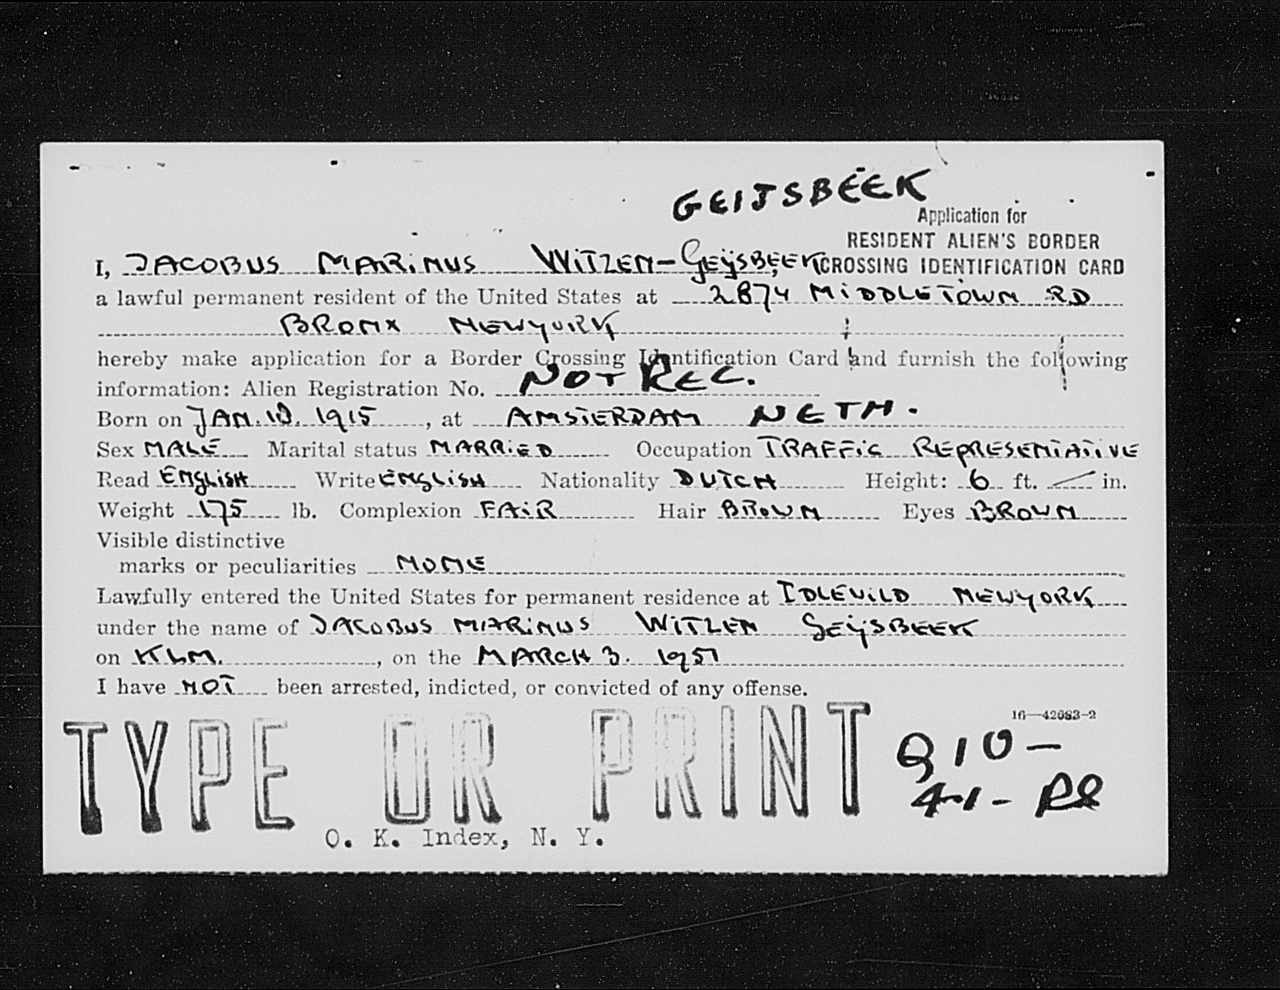 GEIJSBEEK
Application for
RESIDENT ALIEN'S BORDER
CROSSING IDENTIFICATION CARD
I, JACOBUS MARINUS WITZEN-GEYSBEEK
a lawful permanent resident of the United States at 2874 MIDDLETOWN RD
BRONX NEWYORK
hereby make application for a Border Crossing Identification Card and furnish the following
information: Alien Registration No. NOT REC.
Born on JAN. 10. 1915, at AMSTERDAM NETH.
Sex MALE Marital status MARRIED Occupation TRAFFIC REPRESENTATIVE
Read ENGLISH Write ENGLISH Nationality DUTCH Height: 6 ft. — in.
Weight 175 lb. Complexion FAIR Hair BROWN Eyes BROWN
Visible distinctive
marks or peculiarities NONE
Lawfully entered the United States for permanent residence at IDLEWILD NEWYORK
under the name of JACOBUS MARINUS WITZEN GEYSBEEK
on KLM., on the MARCH 3. 1951
I have NOT been arrested, indicted, or convicted of any offense.
16—42683-2
TYPE OR PRINT
O. K. Index, N. Y.